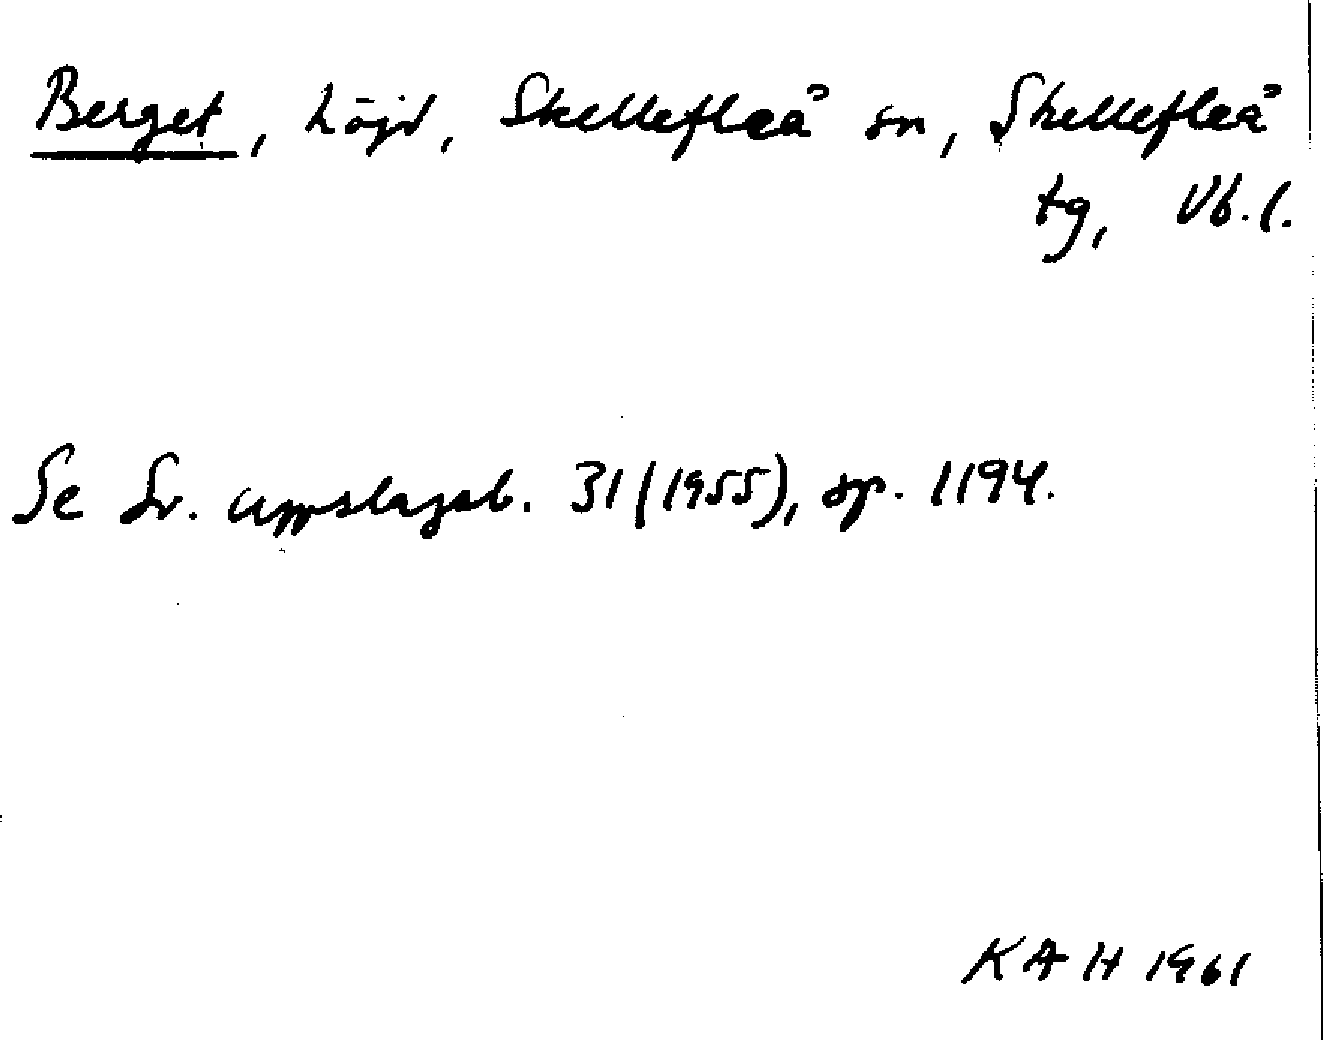 Berget, höjd, Skellefteå sn, Skellefteå
tg, Vb.l.
Se Sv. uppslagsb. 31 (1955), sp. 1194.
KAH 1961